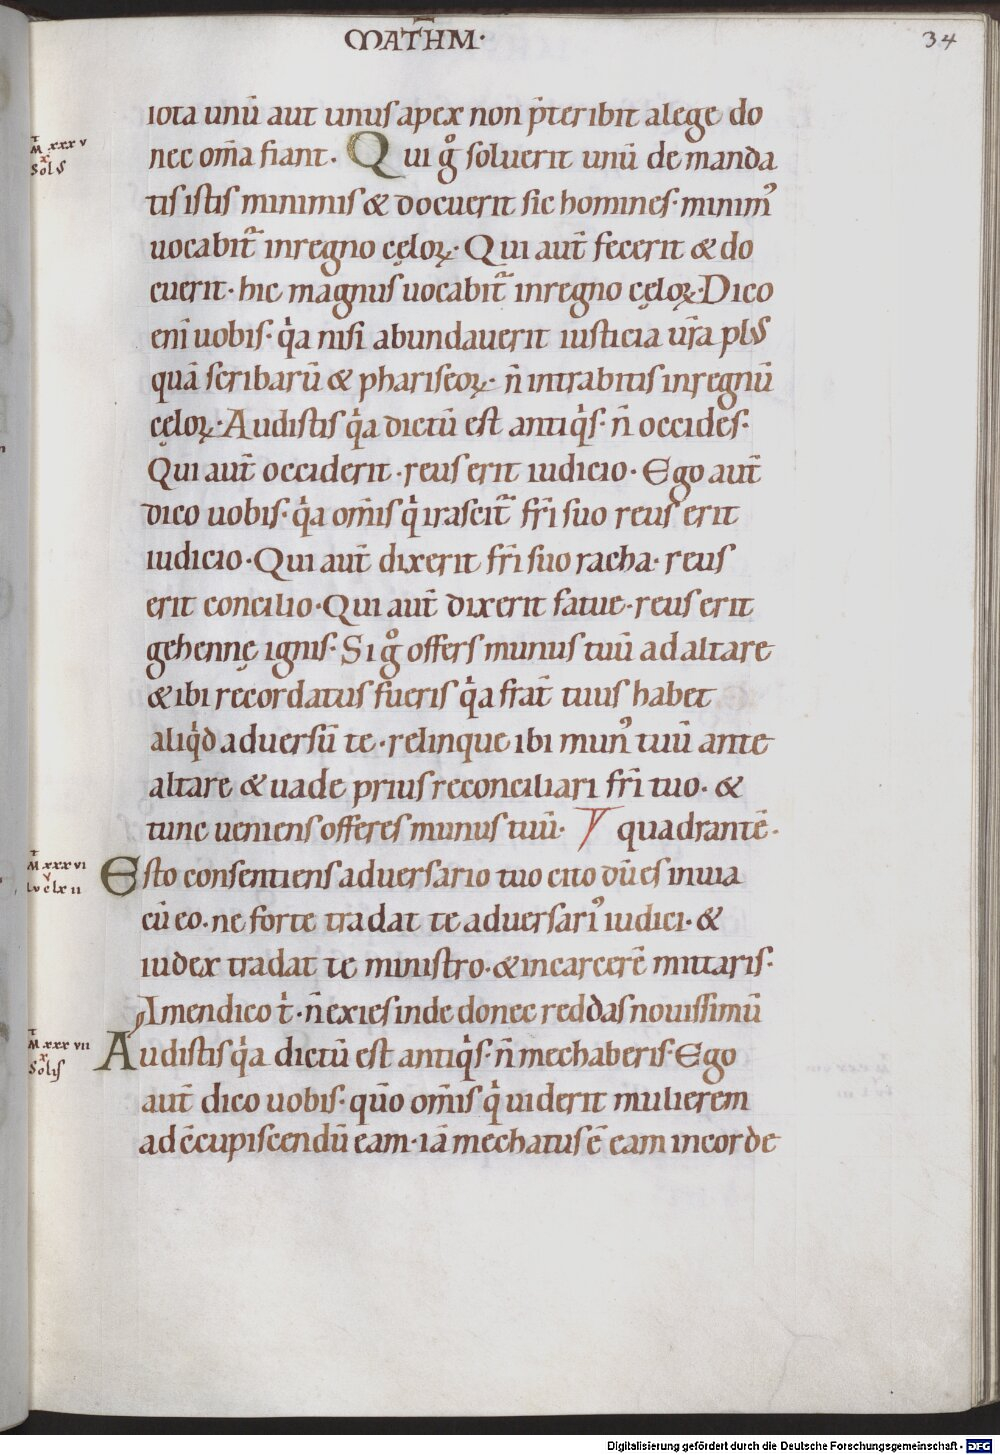 MATHM·
34
iota unū aut unus apex non p̄teribit alege do
nec om̄a fiant. Qui gͦ soluerit unū de manda
tis istis minimis & docuerit sic homines· minimꝰ
uocabit᷑ inregno cęloꝝ· Qui aut̄ fecerit & do
cuerit· hic magnus uocabit᷑ inregno cęloꝝ· Dico
eni᷑ uobis· qͥa nisi abundauerit iusticia ur̄a pluſ
quā scribarū & phariseoꝝ· n̄ intrabitis inregnū
cęloꝝ· Audistis qͥa dictū est antiqͥs· n̄ occides·
Qui aut̄ occiderit· reus erit iudicio· Ego aut̄
dico uobis· qͥa om̄is qͥ irascit᷑ fr̄i suo reus erit
iudicio· Qui aut̄ dixerit fr̄i suo racha· reus
erit concilio· Qui aut̄ dixerit fatue· reus erit
gehennę ignis· Si gͦ offers munus tuū ad altare
& ibi recordatus fueris qͥa frat̄ tuus habet
aliqͥd aduersū te· relinque ibi munꝰ tuū ante
altare & uade prius reconciliari fr̄i tuo· &
tunc ueniens offeres munus tuū· quadrantē·
Esto consentiens aduersario tuo cito dū es in uia
cū eo· ne forte tradat te aduersariꝰ iudici· &
iudex tradat te ministro· & incarcerē mittaris·
Amen dico tͥ· n̄ exies inde donec reddas nouissimū
Audistis qͥa dictū est antiqͥs· n̄ mechaberis· Ego
aut̄ dico uobis· qūo om̄is qͥ uiderit mulierem
ad c̄cupiscendū eam· iā mechatus ē eam incorde
M xxxv
x
Solꝰ
M xxxvi
v
Lv clxii
M xxxvii
x
Solis
Digitalisierung gefördert durch die Deutsche Forschungsgemeinschaft - DFG